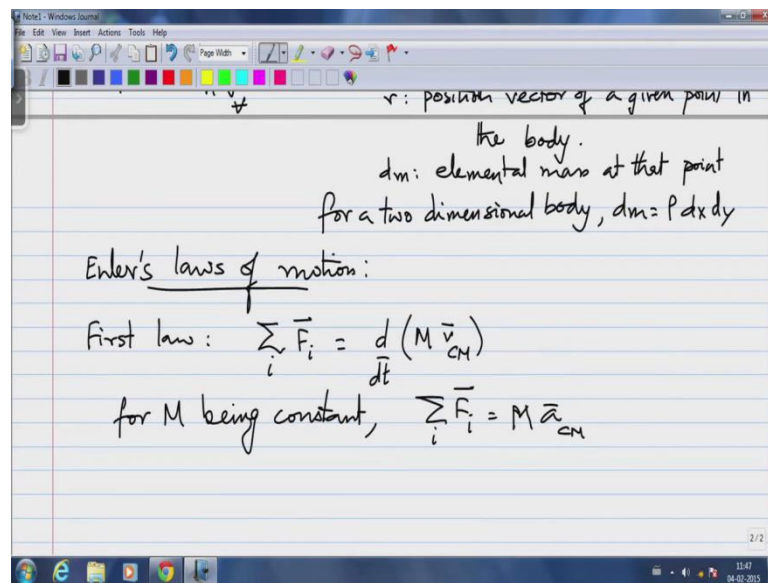 Note1 - Windows Journal
File Edit View Insert Actions Tools Help
Page Width
r : position vector of a given point in
the body.
dm: elemental mass at that point
for a two dimensional body, dm = ρ dx dy
Euler's laws of motion:
First law: Σ_i F̄_i = d/dt (M v̄_CM)
for M being constant, Σ_i F̄_i = M ā_CM
2/2
11:47
04-02-2015